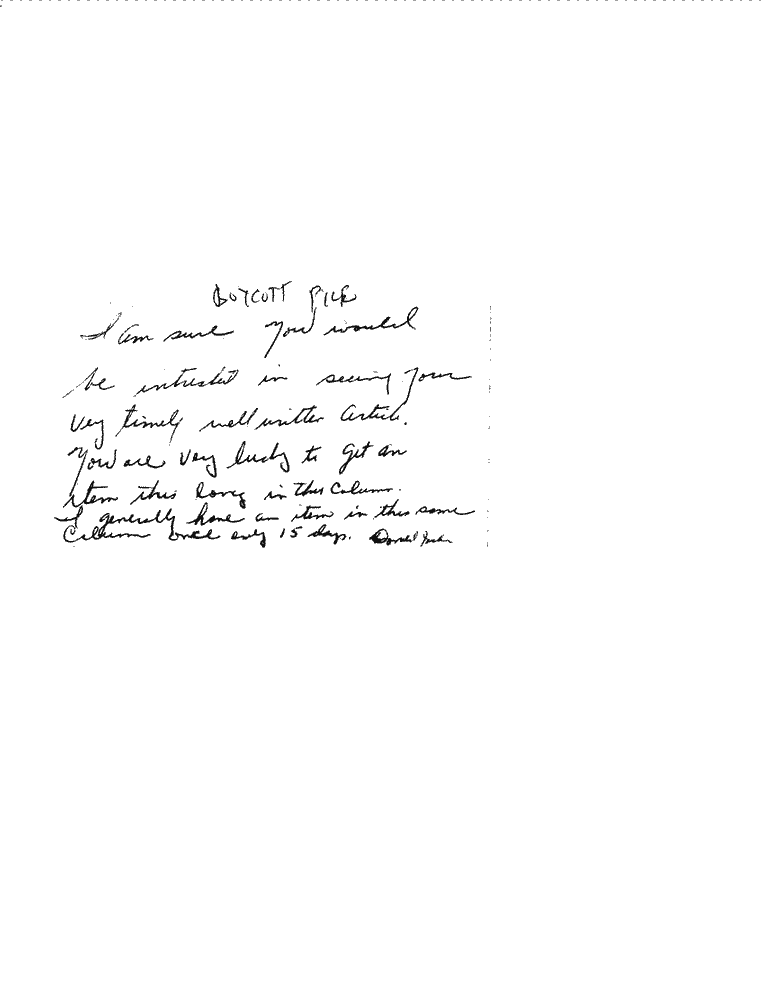 BOYCOTT
I am sure you would
be intrested in seeing your
very timely well written article.
You are very lucky to get an
item this long in this column.
I generally have an item in this same
Column once every 15 days. Donald